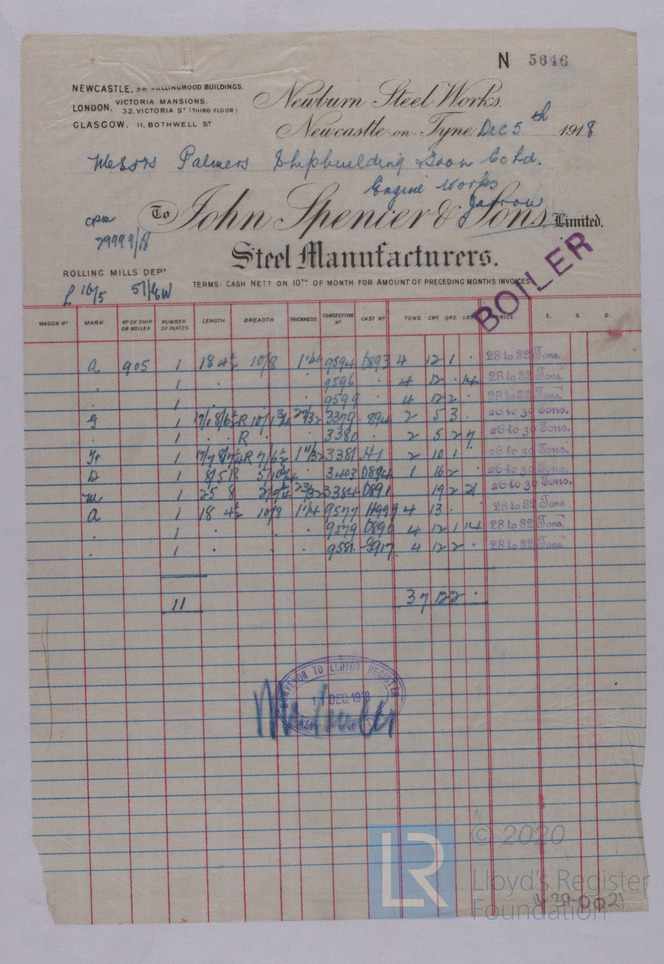 N 5646
NEWCASTLE. COLLINGWOOD BUILDINGS.
LONDON. VICTORIA MANSIONS. 32, VICTORIA ST (THIRD FLOOR)
GLASGOW, 11, BOTHWELL ST
Newburn Steel Works,
Newcastle-on-Tyne, Dec 5th 1918
Messrs Palmers Shipbuilding & Iron Co Ltd.
Engine Works
Jarrow
To John Spencer & Sons, Limited.
29999/18
Steel Manufacturers.
ROLLING MILLS DEPT
TERMS: CASH NETT ON 10TH OF MONTH FOR AMOUNT OF PRECEDING MONTHS INVOICES
BOILER
WAGON No MARK No OF SHIP OR BOILER NUMBER OF PLATES LENGTH BREADTH THICKNESS CONSECUTIVE No CAST No TONS. CWT. QRS. LBS. PRICE. £. S. D.
A 905 1 18 4½ 10/8 1¼ 9594 0893 4 12 1 · 28 to 32 Tons.
· 1 · · · 9596 · 4 12 · 14 28 to 32 Tons.
· 1 · · · 9599 · 4 12 2 · 28 to 32 Tons.
1 3379 894 2 5 3 · 26 to 30 Tons.
· 1 · R · · 3380 · 2 5 2 7 26 to 30 Tons.
1 3381 2 10 1 · 26 to 30 Tons.
D 1 3403 0894 1 16 2 · 26 to 30 Tons.
M 1 25 8 3384 0891 19 2 21 26 to 30 Tons.
A 1 18 4½ 10/8 1¼ 9577 4 13 · 28 to 32 Tons.
· 1 · · · 9579 0890 4 12 1 14 28 to 32 Tons.
· 1 · · · 9581 3917 4 12 2 · 28 to 32 Tons.
11 37 12 2 ·
SURVEYOR TO LLOYDS REGISTER
DEC. 1918
LR © 2020
Lloyd's Register
Foundation